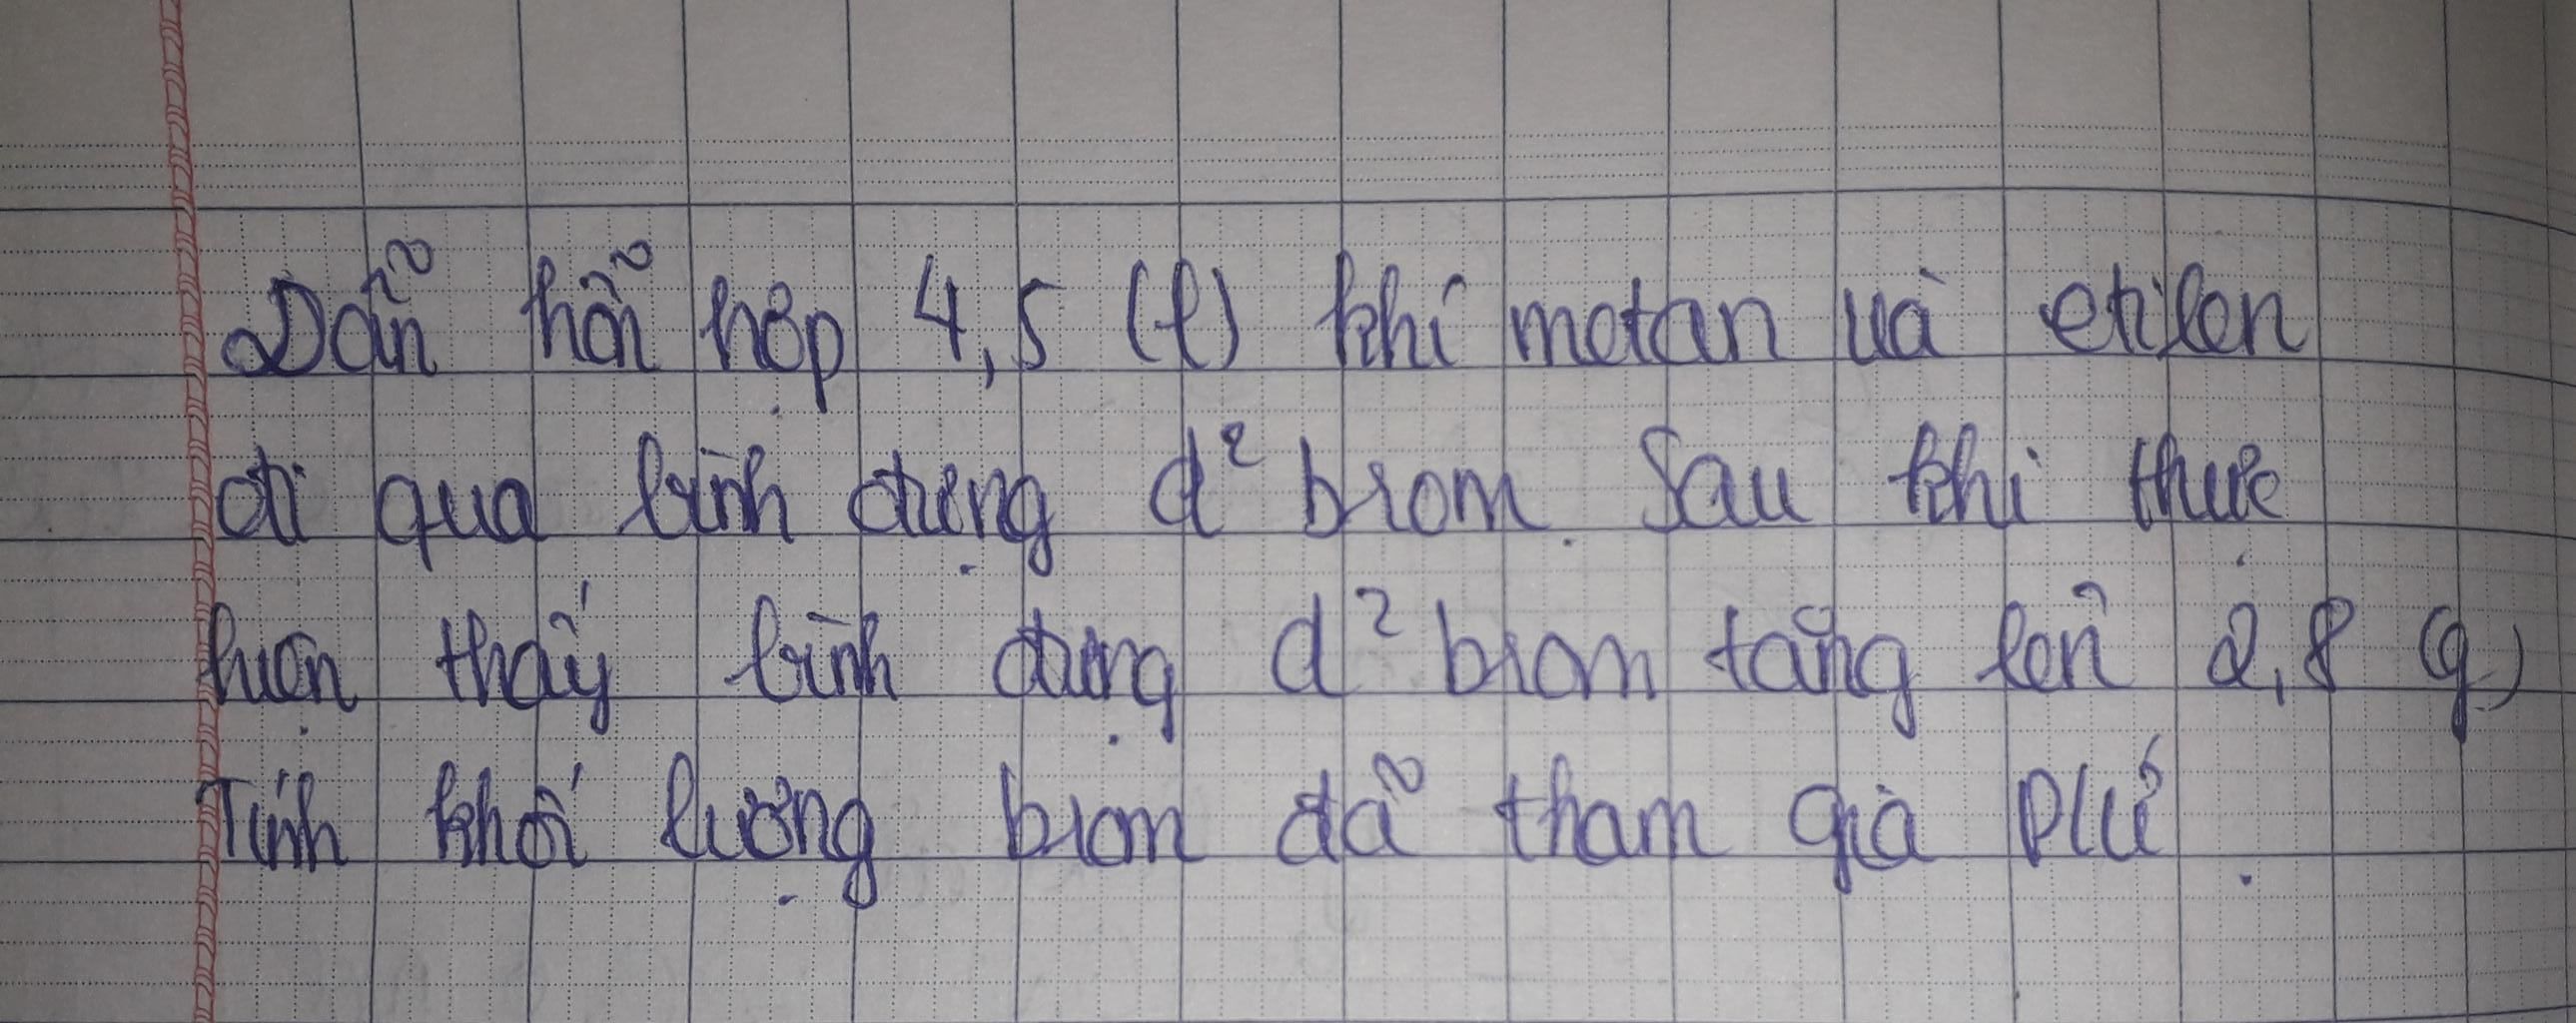 Dẫn hỗn hợp 4,5 (l) khí metan và etilen
đi qua bình đựng d² brom. Sau khi thực
hiện thấy bình đựng d² brom tăng lên 2,8 (g)
Tính khối lượng brom đã tham gia p/ứ.